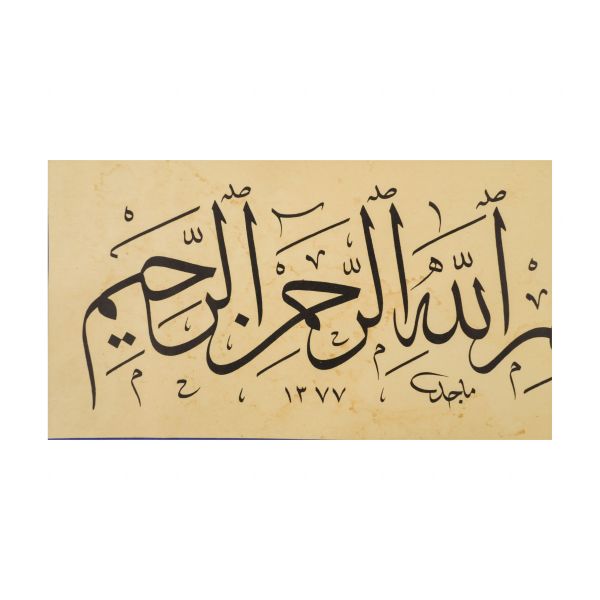 ـم ٱللَّهِ ٱلرَّحْمَٰنِ ٱلرَّحِيمِ
ماجد ١٣٧٧